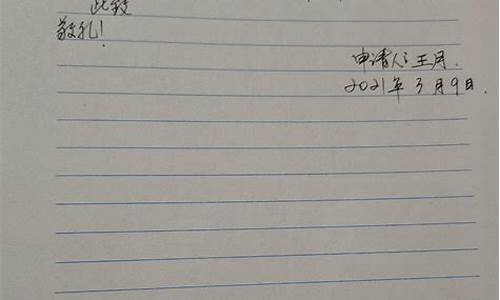 此致
敬礼!
申请人:王月.
2021年3月9日.